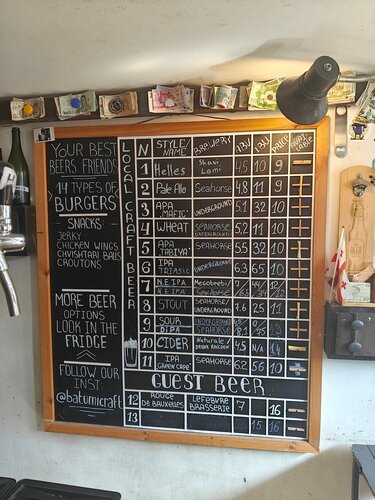 YOUR BEST
BEERS FRIENDS
14 TYPES OF
BURGERS
SNACKS
JERKY
CHICKEN WINGS
CHVISHTARI BALLS
CROUTONS
MORE BEER
OPTIONS
LOOK IN THE
FRIDGE
FOLLOW OUR
INST:
@batumicraft
LOCAL CRAFT BEER
N STYLE/NAME BREWERY PRICE
1 Helles Shavi Lomi 4.5 10 9 -
2 Pale Ale Seahorse 4.8 11 9 +
3 APA "MAFIC" UNDERGROUND 5.1 32 10 -
4 WHEAT SEAHORSE 5.2 11 10 +
5 APA TABIYA UNDERGROUND 5.5 32 10 +
6 IPA TRIASIC UNDERGROUND 6.3 65 10 +
7 NEIPA 44
8 STOUT SEAHORSE/UNDERGROUND 7.6 25 11 +
9 SOUR DIPA SEAHORSE
10 CIDER 4.5 N/A
11 IPA SEAHORSE 6.2 56 10 +
GUEST BEER
12 ROUGE DE BRUXELLES LEFEBVRE BRASSERIE 7 16 -
13 15 16 -